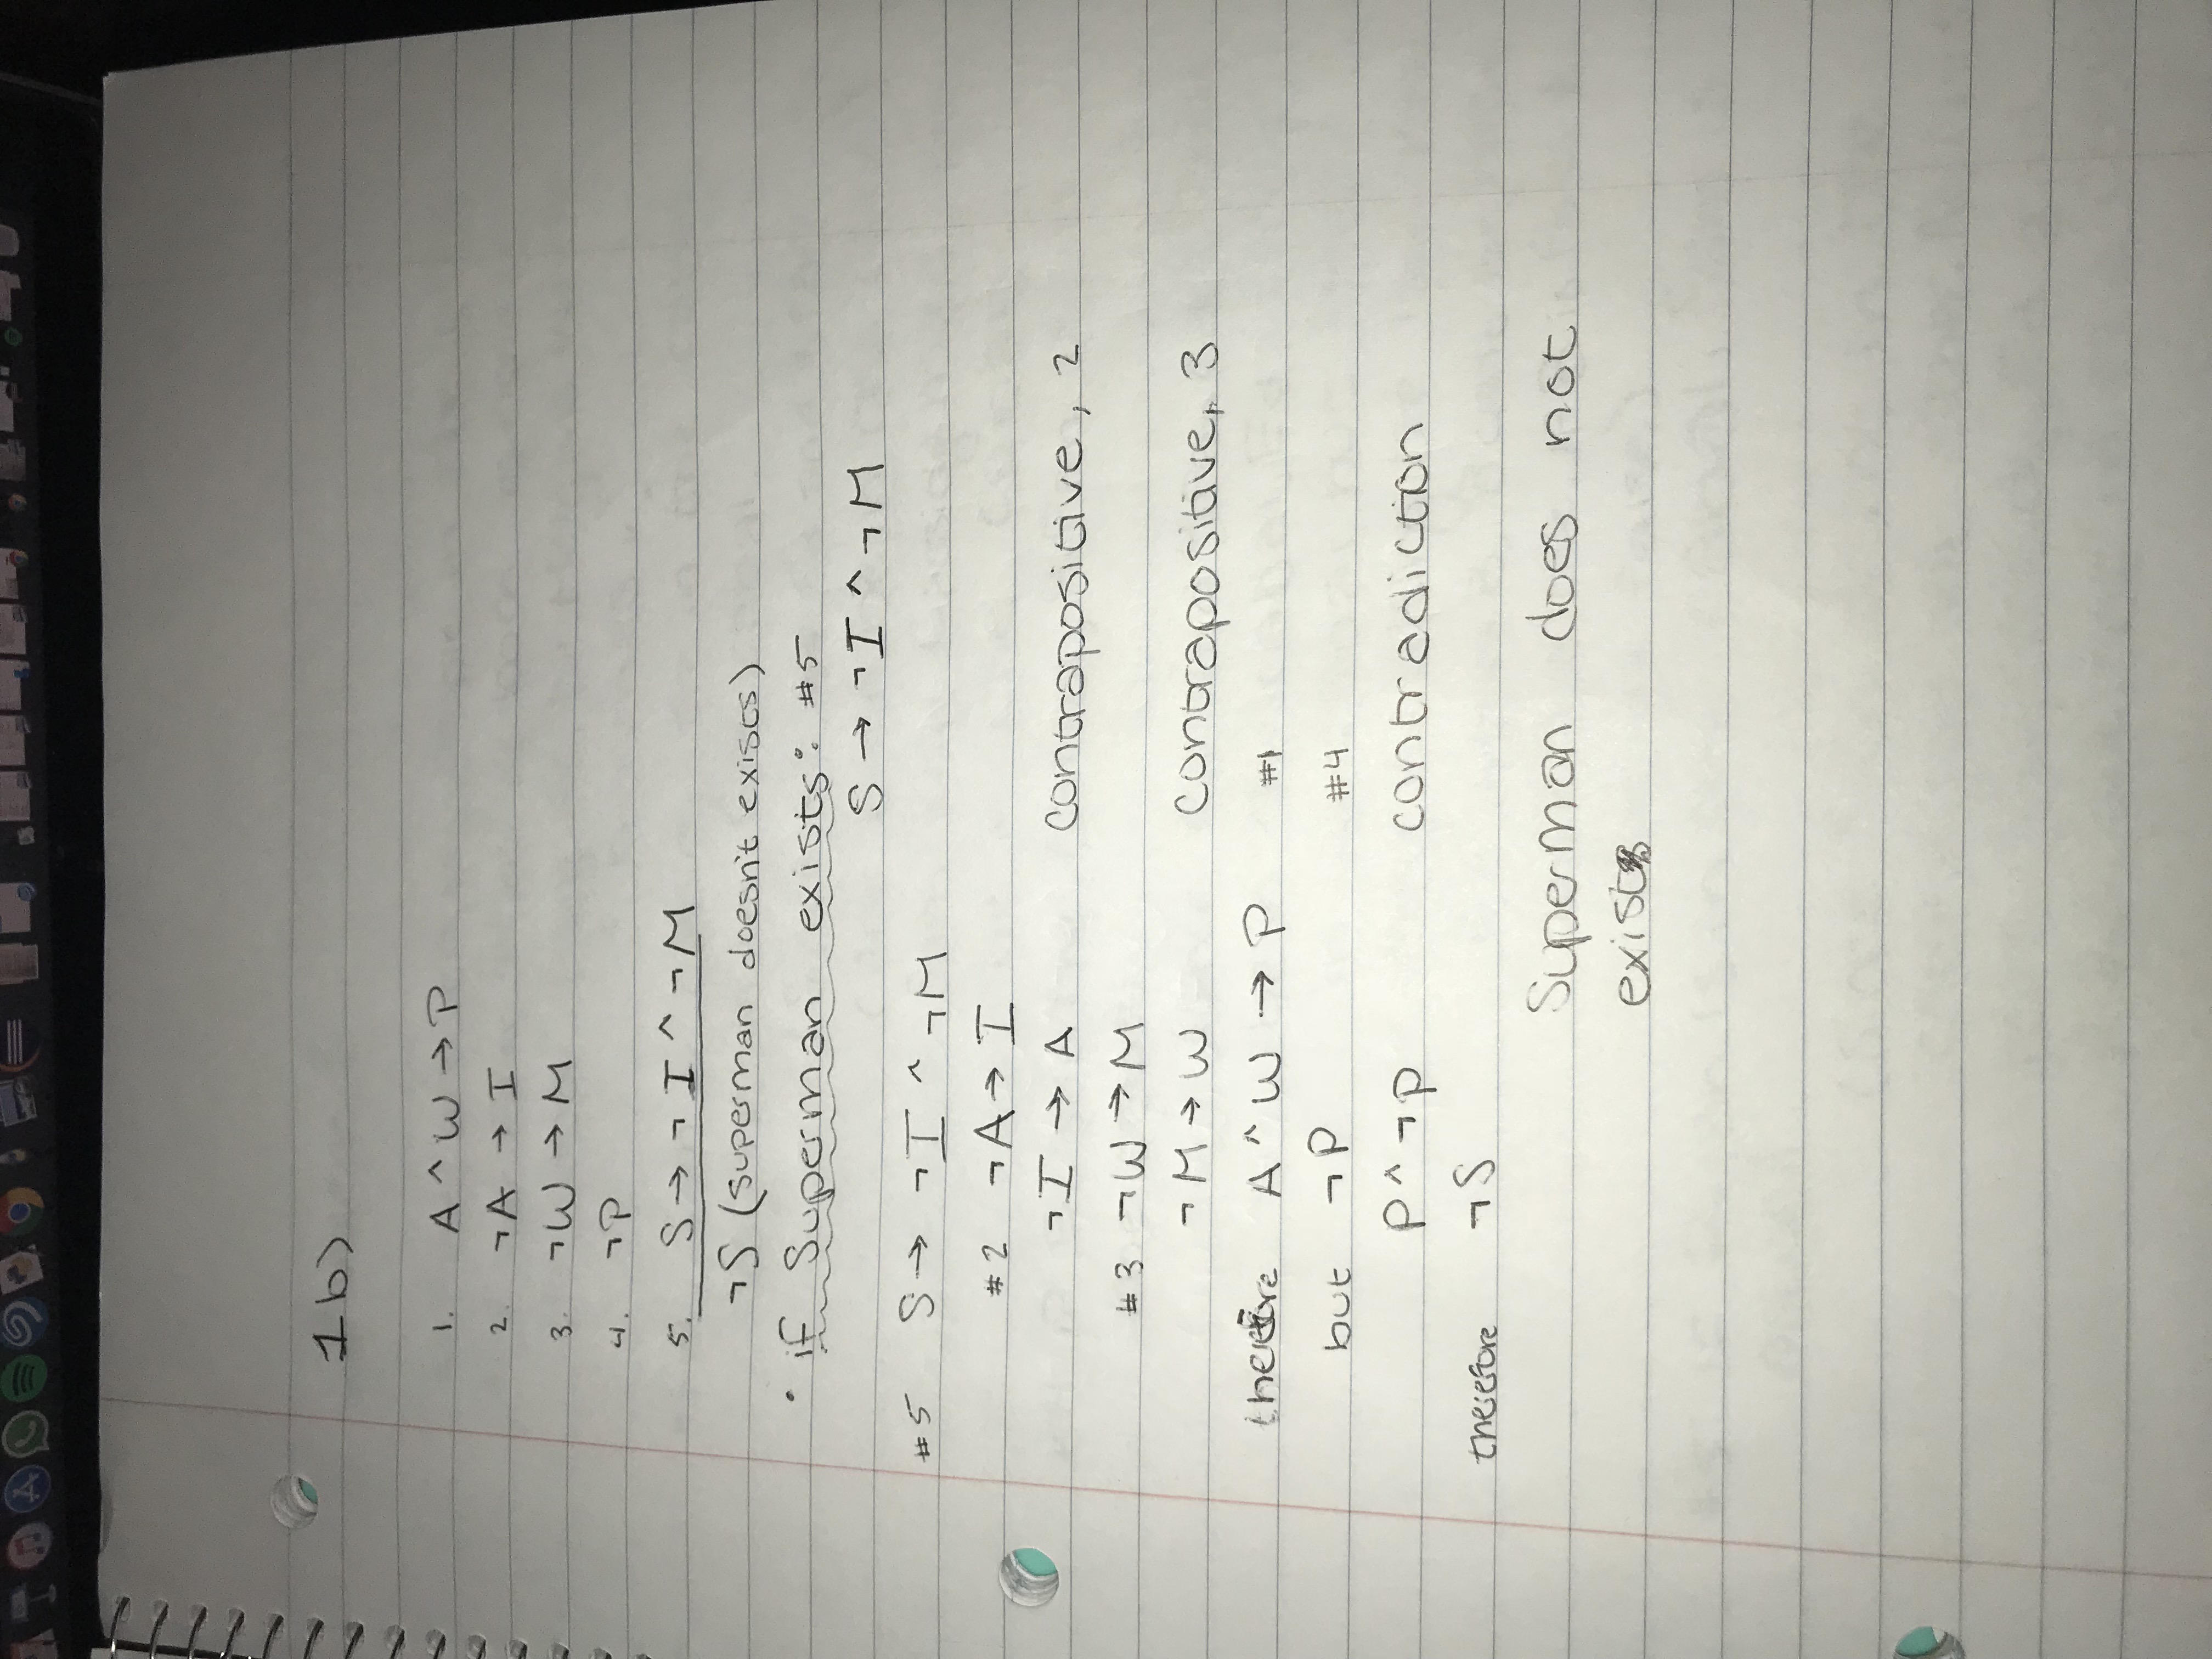 1b)
1. A ^ W → P
2. ¬A → I
3. ¬W → M
4. ¬P
5. S → ¬I ^ ¬M
¬S (superman doesn't exists)
• if Superman exists: #5
S → ¬I ^ ¬M
#5 S → ¬I ^ ¬M
#2 ¬A → I
¬I → A contrapositive, 2
#3 ¬W → M
¬M → W contrapositive, 3
therefore A ^ W → P #1
but ¬P #4
P ^ ¬P contradiction
therefore ¬S
Superman does not
exist